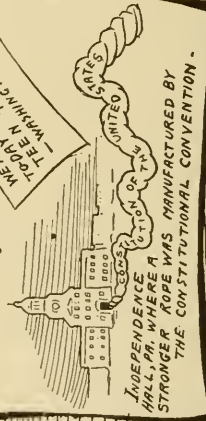 TEEN
—WASHING
CONSTITUTION OF THE UNITED STATES
INDEPENDENCE
HALL, PA. WHERE A
STRONGER ROPE WAS MANUFACTURED BY
THE CONSTITUTIONAL CONVENTION -